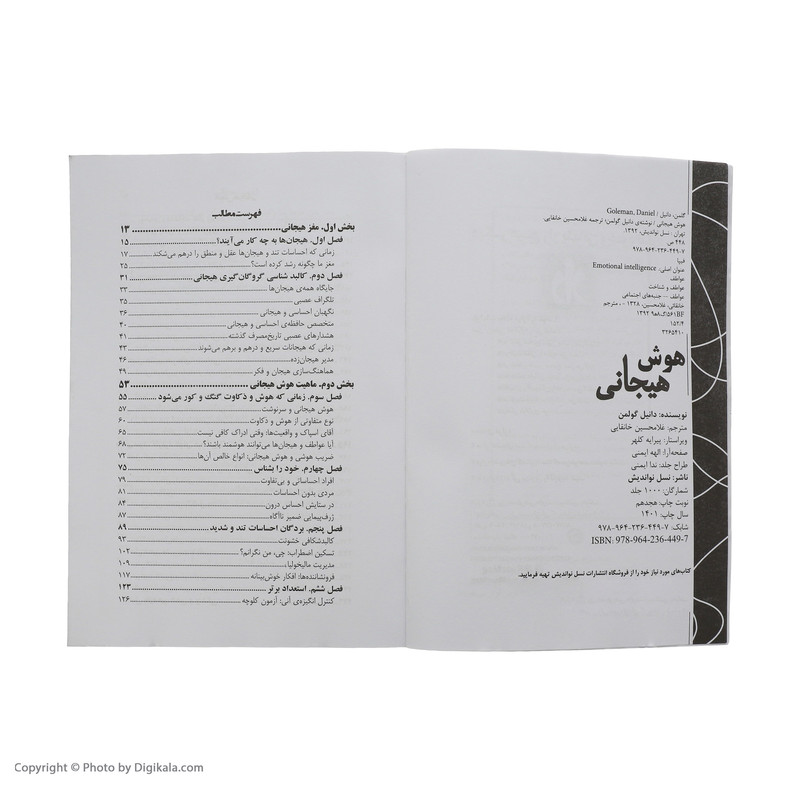 گلمن، دانیل / Goleman, Daniel
هوش هیجانی/ نوشته‌ی دانیل گولمن؛ ترجمه غلامحسین خانقایی.
تهران : نسل نواندیش، ۱۳۹۲.
۴۴۸ ص.
۹۷۸-۹۶۴-۲۳۶-۴۴۹-۷
فیپا
عنوان اصلی: Emotional intelligence
عواطف
عواطف و شناخت
عواطف -- جنبه‌های اجتماعی
خانقائی، غلامحسین، ۱۳۲۸ - ، مترجم
۱۵۲/۴
۳۲۶۵۴۱۰
هوش
هیجانی
نویسنده: دانیل گولمن
مترجم: غلامحسین خانقایی
ویراستار: پیرایه کلهر
صفحه‌آرا: الهه ایمنی
طراح جلد: ندا ایمنی
ناشر: نسل نواندیش
شمارگان: ۱۰۰۰ جلد
نوبت چاپ: هجدهم
سال چاپ: ۱۴۰۱
شابک: ۷-۴۴۹-۲۳۶-۹۶۴-۹۷۸
ISBN: 978-964-236-449-7
کتاب‌های مورد نیاز خود را از فروشگاه انتشارات نسل نواندیش تهیه فرمایید.
فهرست مطالب
بخش اول. مغز هیجانی ۱۳
فصل اول. هیجان‌ها به چه کار می‌آیند؟ ۱۵
زمانی که احساسات تند و هیجان‌ها عقل و منطق را درهم می‌شکند ۱۷
مغز ما چگونه رشد کرده است؟ ۲۵
فصل دوم. کالبد شناسی گروگان‌گیری هیجانی ۳۱
جایگاه همه‌ی هیجان‌ها ۳۳
تلگراف عصبی ۳۵
نگهبان احساسی و هیجانی ۳۶
متخصص حافظه‌ی احساسی و هیجانی ۴۰
هشدارهای عصبی تاریخ‌مصرف گذشته ۴۱
زمانی که هیجانات سریع و درهم و برهم می‌شوند ۴۳
مدیر هیجان‌زده ۴۶
هماهنگ‌سازی هیجان و فکر ۴۹
بخش دوم. ماهیت هوش هیجانی ۵۳
فصل سوم. زمانی که هوش و ذکاوت گنگ و کور می‌شود ۵۵
هوش هیجانی و سرنوشت ۵۷
نوع متفاوتی از هوش و ذکاوت ۶۰
آقای اسپاک و واقعیت‌ها: وقتی ادراک کافی نیست ۶۵
آیا عواطف و هیجان‌ها می‌توانند هوشمند باشند؟ ۶۸
ضریب هوشی و هوش هیجانی: انواع خالص آن‌ها ۷۲
فصل چهارم. خود را بشناس ۷۵
افراد احساساتی و بی‌تفاوت ۷۹
مردی بدون احساسات ۸۱
در ستایش احساس درون ۸۴
ژرف‌پیمایی ضمیر ناآگاه ۸۷
فصل پنجم. بردگان احساسات تند و شدید ۸۹
کالبدشکافی خشونت ۹۳
تسکین اضطراب: چی، من نگرانم؟ ۱۰۲
مدیریت مالیخولیا ۱۰۹
فرونشاننده‌ها: افکار خوش‌بینانه ۱۱۷
فصل ششم. استعداد برتر ۱۲۳
کنترل انگیزه‌ی آنی: آزمون کلوچه ۱۲۶
Copyright © Photo by Digikala.com